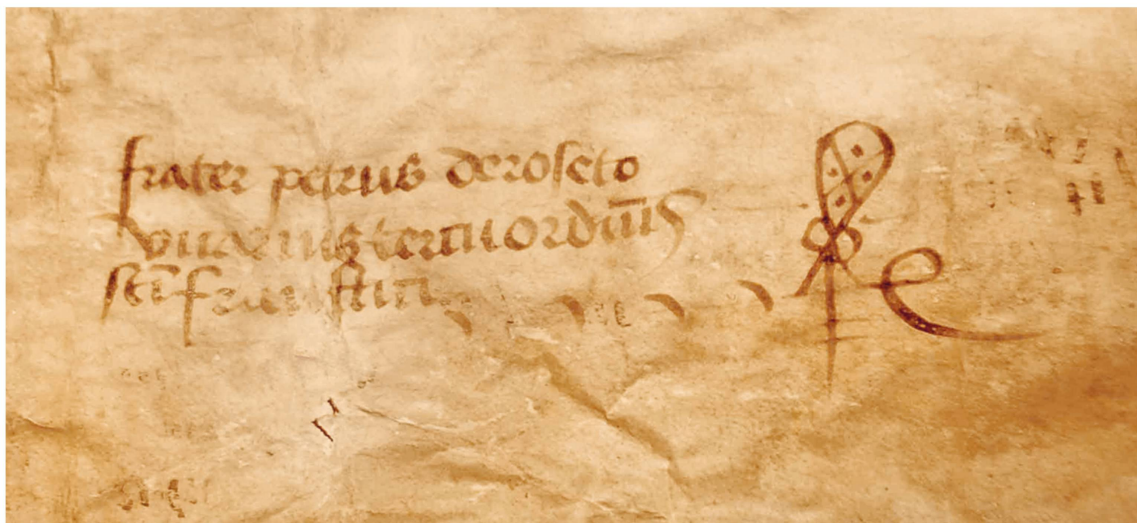 frater petrus de roseto
vicarius tercii ordinis
scī francisci